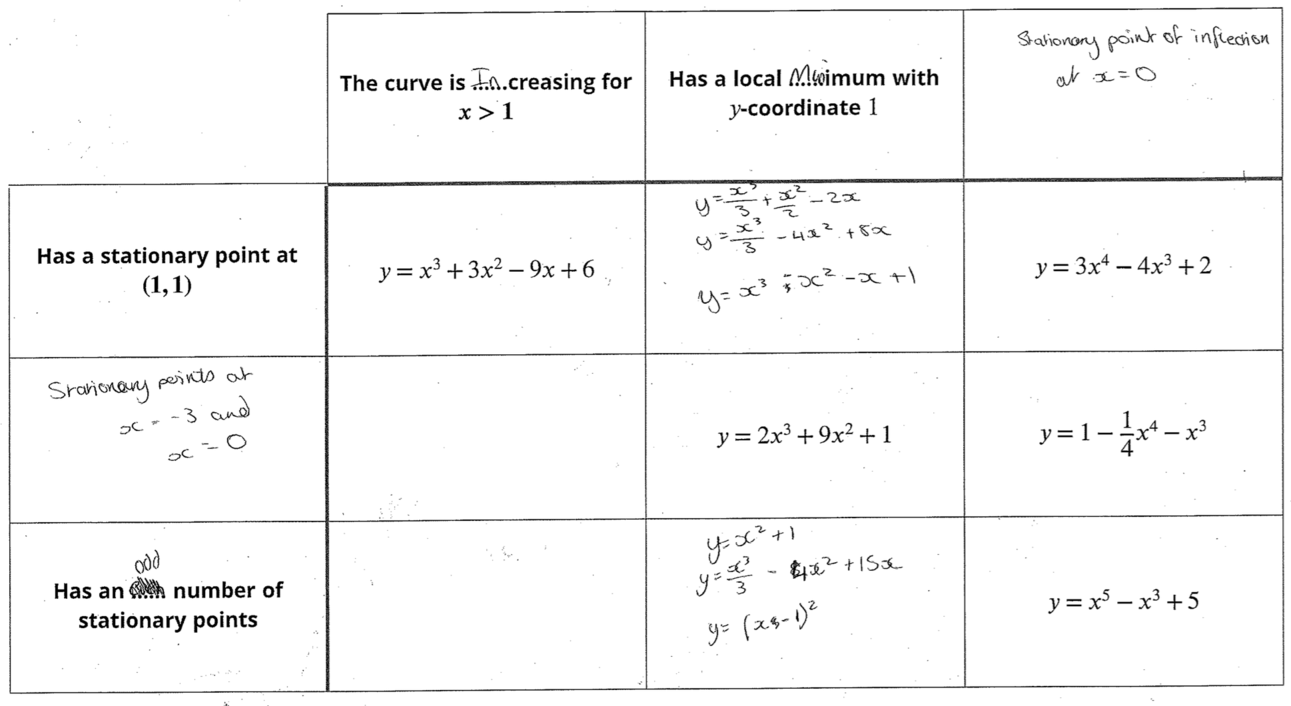 The curve is In.creasing for
x > 1
Has a local Minimum with
y-coordinate 1
Stationary point of inflection
at x = 0
Has a stationary point at
(1, 1)
y = x³ + 3x² − 9x + 6
y = x³/3 + x²/2 − 2x
y = x³/3 − 4x² + 8x
y = x³ - x² − x + 1
y = 3x⁴ − 4x³ + 2
Stationary points at
x = -3 and
x = 0
y = 2x³ + 9x² + 1
y = 1 − 1/4x⁴ − x³
odd
Has an number of
stationary points
y = x² + 1
y = x³/3 - 4x² + 15x
y = (x-1)²
y = x⁵ − x³ + 5